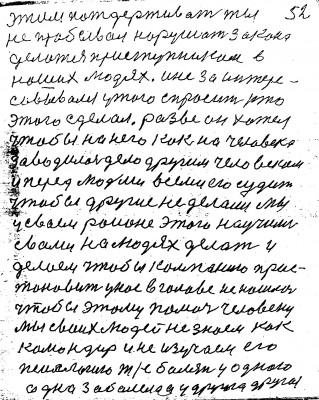 этим потдерживат ты 52
не пробывал нарушат закона
делотся приступником в
наших людях. и не заинтере-
совывали у того спросит кто
этого сделал. разве он хотел
чтобы на него как на человека
заводилася дело другим человеком
и перед людми всеми его судит
чтобы другие не делали мы
у своем районе этого научили
свами на людях делат и
делаем чтобы компанию прис-
тановит у нас в голове не нашлося
чтобы этому помоч человеку
мы своих людей не знаем как
командир и не изучаем его
т/к болят у одного
одна заболела а у друга другая